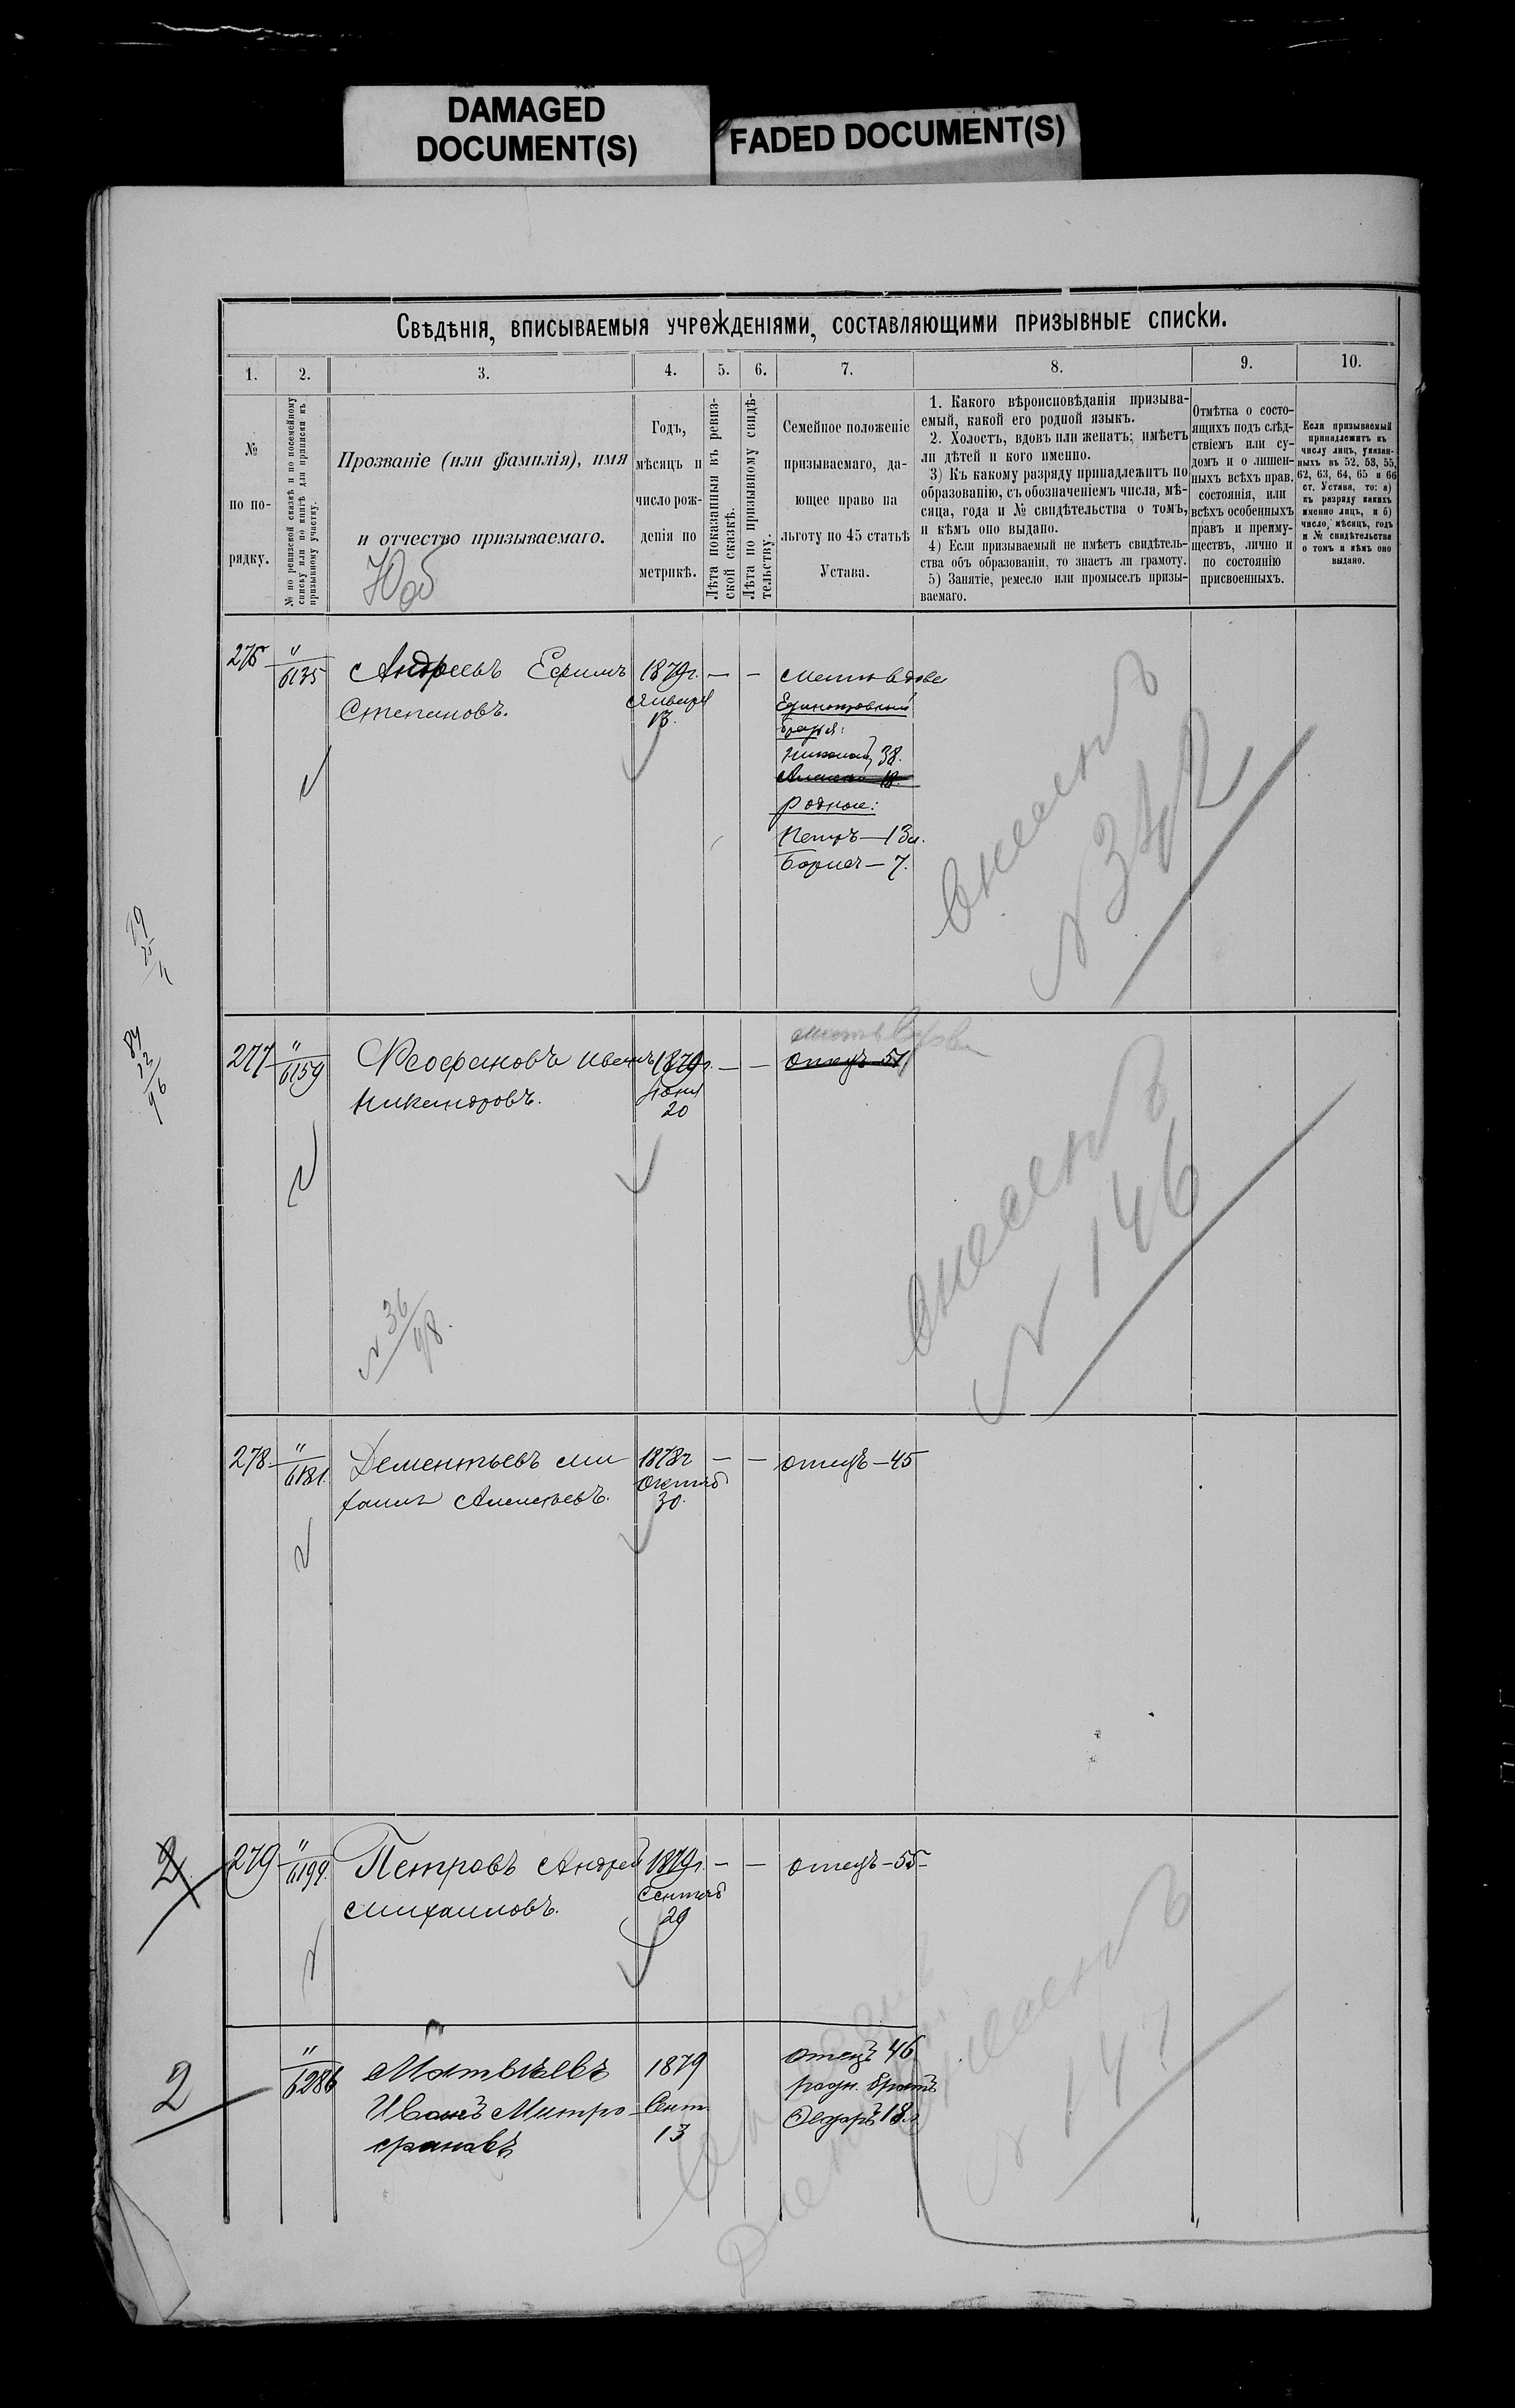 DAMAGED
DOCUMENT(S)
FADED DOCUMENT(S)
Свѣдѣнія, вписываемыя учрежденіями, составляющими призывные списки.
1. 2. 3. 4. 5. 6. 7. 8. 9. 10.
№
по по-
рядку.
№ по ревизской сказкѣ и по посемейному
списку или по книгѣ для приписки къ
призывному участку.
Прозваніе (или фамилія), имя
и отчество призываемаго.
Годъ,
мѣсяцъ и
число рож-
денія по
метрикѣ.
Лѣта показанныя въ ревиз-
ской сказкѣ.
Лѣта по призывному свидѣ-
тельству.
Семейное положеніе
призываемаго, да-
ющее право на
льготу по 45 статьѣ
Устава.
1. Какого вѣроисповѣданія призыва-
емый, какой его родной языкъ.
2. Холостъ, вдовъ или женатъ; имѣетъ
ли дѣтей и кого именно.
3) Къ какому разряду принадлежитъ по
образованію, съ обозначеніемъ числа, мѣ-
сяца, года и № свидѣтельства о томъ,
и кѣмъ оно выдано.
4) Если призываемый не имѣетъ свидѣтель-
ства объ образованіи, то знаетъ ли грамоту.
5) Занятіе, ремесло или промыселъ призы-
ваемаго.
Отмѣтка о состо-
ящихъ подъ слѣд-
ствіемъ или су-
домъ и о лишен-
ныхъ всѣхъ прав.
состоянія, или
всѣхъ особенныхъ
правъ и преиму-
ществъ, лично и
по состоянію
присвоенныхъ.
Если призываемый
принадлежитъ къ
числу лицъ, указан-
ныхъ въ 52, 53, 55,
62, 63, 64, 65 и 66
ст. Устава, то: а)
къ разряду какихъ
именно лицъ, и б)
число, мѣсяцъ, годъ
и № свидѣтельства
о томъ и кѣмъ оно
выдано.
276 " 6135 Андреевъ Ефимъ 1879г. — — мать вдова
Степановъ. Января 13.
Единокровный
братья:
Николай 38.
Родные:
Петръ — 13л.
Борисъ — 7.
внесенъ
№ 342
277 " 6159 Феофановъ Иванъ 1879г. — — мать вдова
отецъ 51
Никандровъ. Іюня
20
внесенъ
№ 146
№ 36/98.
278 " 6181. Дементьевъ Ми 1878г — — отецъ — 45
хаилъ Алексѣевъ. Октяб
30.
2 279 " 6194. Петровъ Андрей 1879г. — — отецъ — 55
Михаиловъ. Сентяб
29
внесенъ
№ 147
2 " 6286 Матвѣевъ 1879 отецъ 46
Иванъ Митро Сент. родн. братъ
фановъ 13 Ѳедоръ 18л